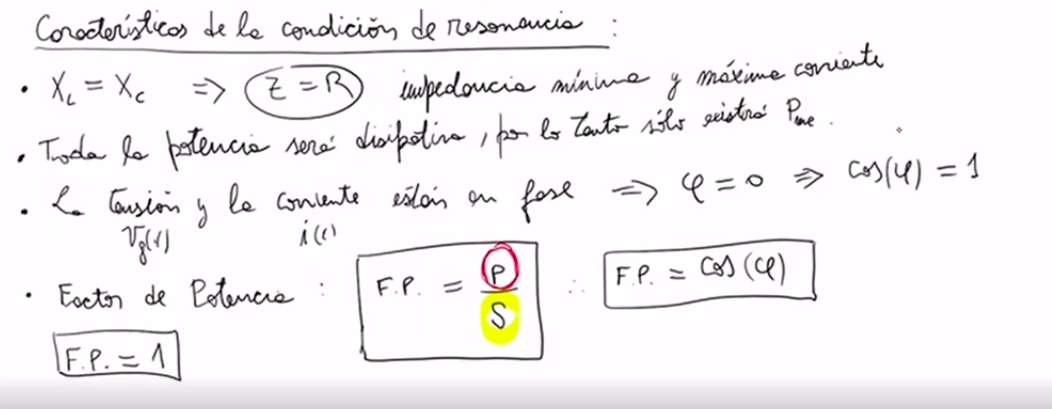 Características de la condición de resonancia :
• X_L = X_C ⇒ Z = R impedancia mínima y máxima corriente
• Toda la potencia será disipativa, por lo tanto sólo existirá P_me.
• La tensión y la corriente están en fase ⇒ φ = 0 ⇒ cos(φ) = 1
V_g(t) i(t)
• Factor de Potencia : F.P. = P/S ∴ F.P. = cos(φ)
F.P. = 1